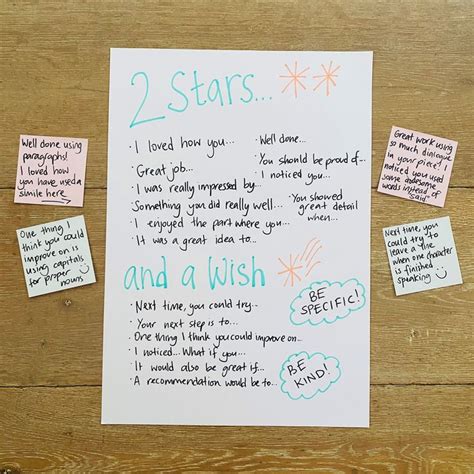 2 Stars...
· I loved how you...
· Great job...
· I was really impressed by...
· Something you did really well...
· I enjoyed the part where you...
· It was a great idea to...
· Well done...
· You should be proud of...
· I noticed you...
· You showed
great detail
when...
and a Wish
· Next time, you could try...
· Your next step is to...
· One thing I think you could improve on...
· I noticed... What if you...
· It would also be great if...
· A recommendation would be to...
BE
SPECIFIC!
BE
KIND!
Well done using
paragraphs!
I loved how
you have used a
simile here
One thing I
think you could
improve on is
using capitals
for proper
nouns
Great work using
so much dialogue
in your piece! I
noticed you used
some awesome
words instead of
"said"
Next time, you
could try to
leave a line
when one character
is finished
speaking